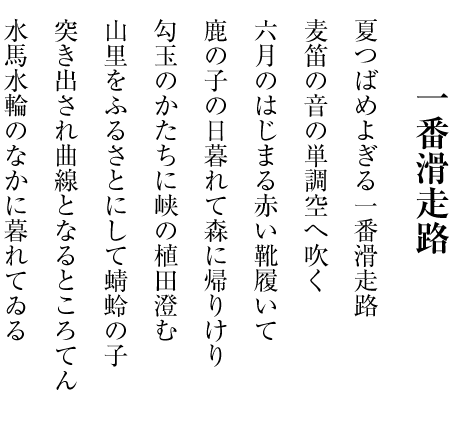 一番滑走路
夏つばめよぎる一番滑走路
麦笛の音の単調空へ吹く
六月のはじまる赤い靴履いて
鹿の子の日暮れて森に帰りけり
勾玉のかたちに峡の植田澄む
山里をふるさとにして蜻蛉の子
突き出され曲線となるところてん
水馬水輪のなかに暮れてゐる